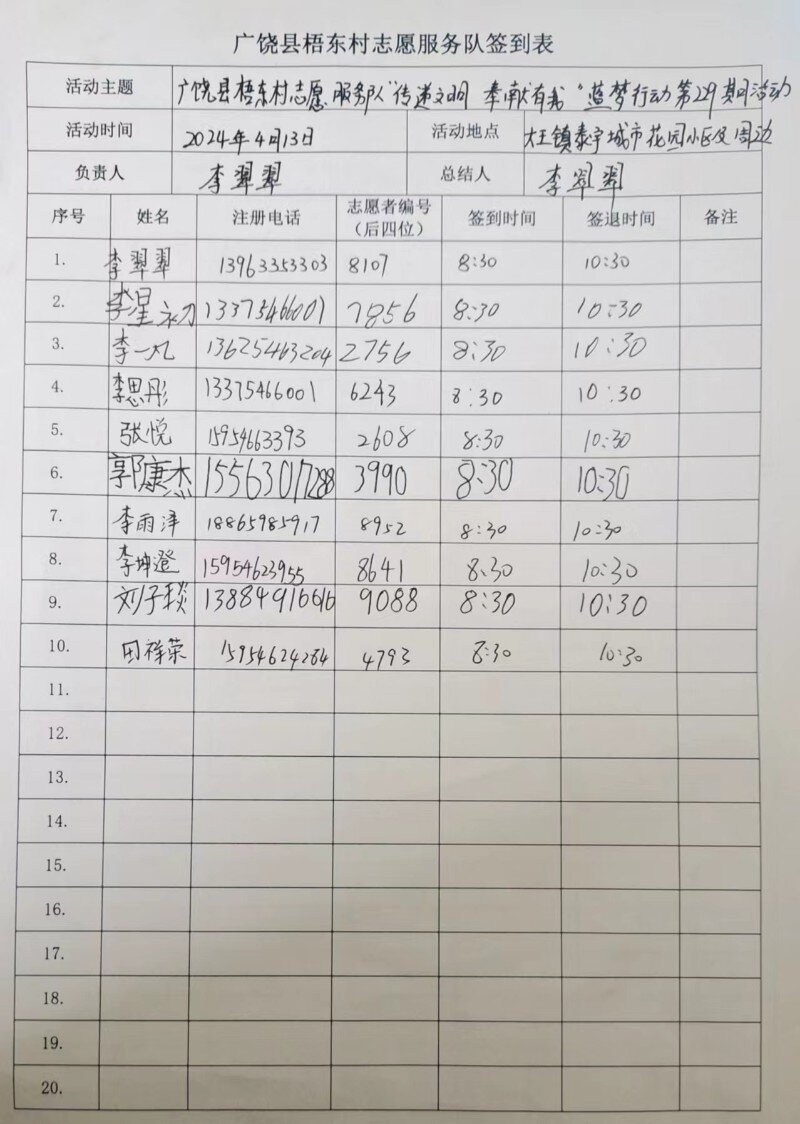 广饶县梧东村志愿服务队签到表
活动主题 广饶县梧东村志愿服务队"传递文明 奉献有我"蓝梦行动第229期活动
活动时间 2024年4月13日 活动地点 大王镇泰宇城市花园小区及周边
负责人 李翠翠 总结人 李翠翠
序号 姓名 注册电话 志愿者编号（后四位） 签到时间 签退时间 备注
1. 李翠翠 13963353303 8107 8:30 10:30
2. 李星初 13375466001 7856 8:30 10:30
3. 李一凡 13625463204 2756 8:30 10:30
4. 李思彤 13375466001 6243 8:30 10:30
5. 张悦 15954663393 2608 8:30 10:30
6. 郭康杰 15563017288 3990 8:30 10:30
7. 李雨泽 18865985917 8952 8:30 10:30
8. 李坤澄 15954623955 8641 8:30 10:30
9. 刘子 13884916616 9088 8:30 10:30
10. 田祥荣 15954624284 4793 8:30 10:30
11.
12.
13.
14.
15.
16.
17.
18.
19.
20.